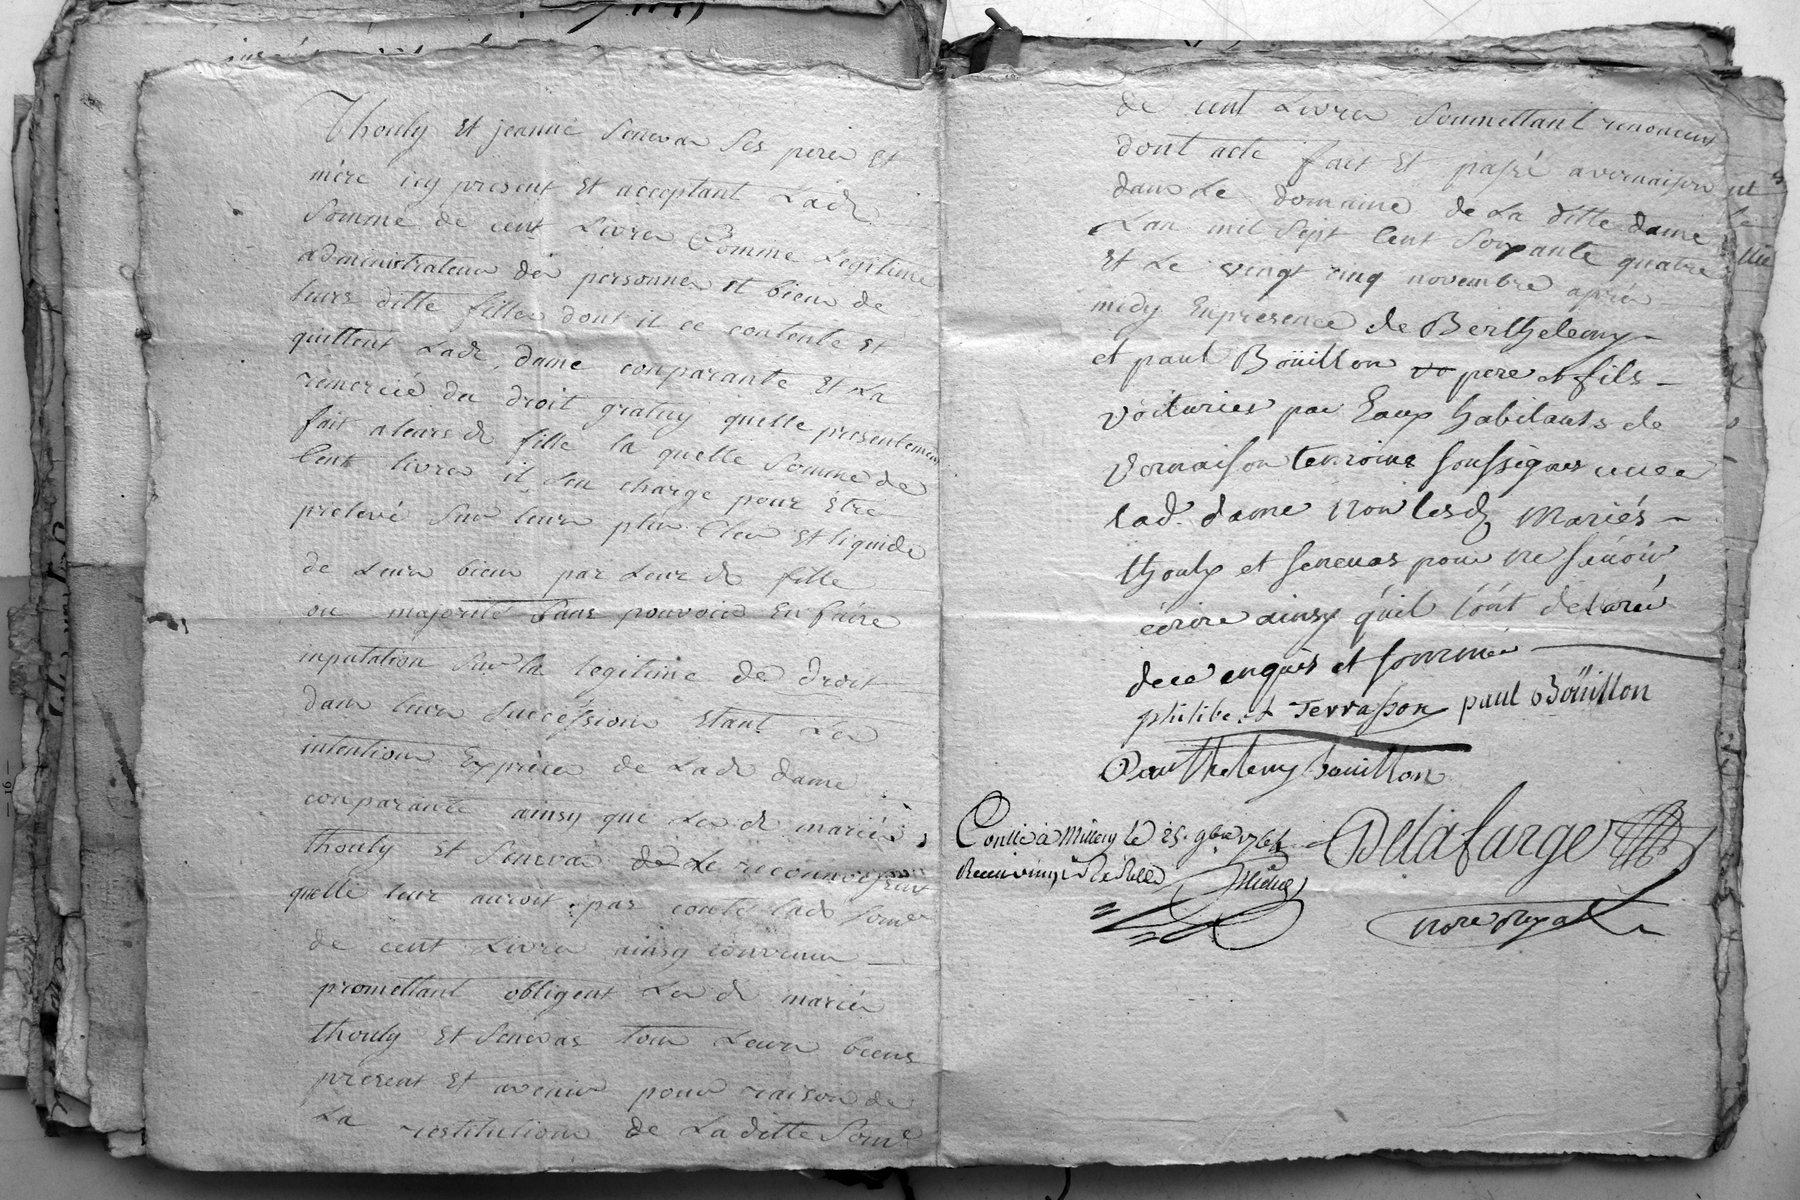 Thouly Et jeanne Senevas Ses perer Et
mére icy present Et acceptant Lade
Somme de cent Livres Comme Legitime
administrateur der personner Et bien de
leurs ditte filler dont il ce contente Et
quittent Lade. dame conparante Et La
remercié du droit gratuy quelle presentement
fait aleurs de fille la quelle Somme de
Cent livres il Sen charge pour Etre
prelevé Sur leurs plus Cler Et liquide
de Leurs biens par Leur de fille
en majorité Sans pouvoir En faire
inputation Sur la legitime de droit
dans leurs Succession Etant Les
intention Expresses de Lade dame
conparante ainsy que Les de mariés,
thouly Et Senevas de Le reconnoissent
quelle leur auroit par conté lade Some
de cent Livres ainsy convenu —
promettant obligent Les de mariés
thouly Et Senevas tous Leurs biens
present Et avenir pour raison de
La restitution de La ditte Some
de cent Livres Soumettant renoncent
dont acte fait Et passé avernaison
dans Le domaine de La ditte dame
Lan mil Sept Cent Soixante quatre
Et Le vingt cinq novembre aprés
midy Enpresence de Berthelemy —
et paul Boüillon vo pere et fils —
voituries par Eaux habitants de
Vernaison temoins soussignes avec
lad. dame Non lesd mariés —
thouly et senevas pour ne sçavoir
écrire ainsy qu'il l'ont declaré
dece enquis et sommés
philibert Terrasson paul Boüillon
Barthelemy bouillon
Conllé à Millery le 25. 9bre 1764
Delafarge
Receu vingt
nore Royal